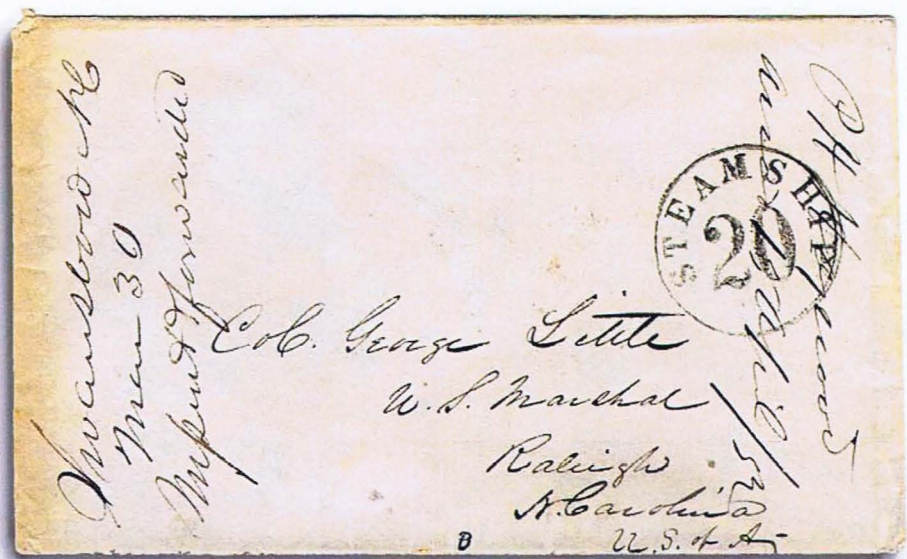 Swansboro NC
Mar 30
Missent & forwarded
STEAMSHIP
20
Col. George Little
U. S. Marshal
Raleigh
N. Carolina
U. S. of A
B